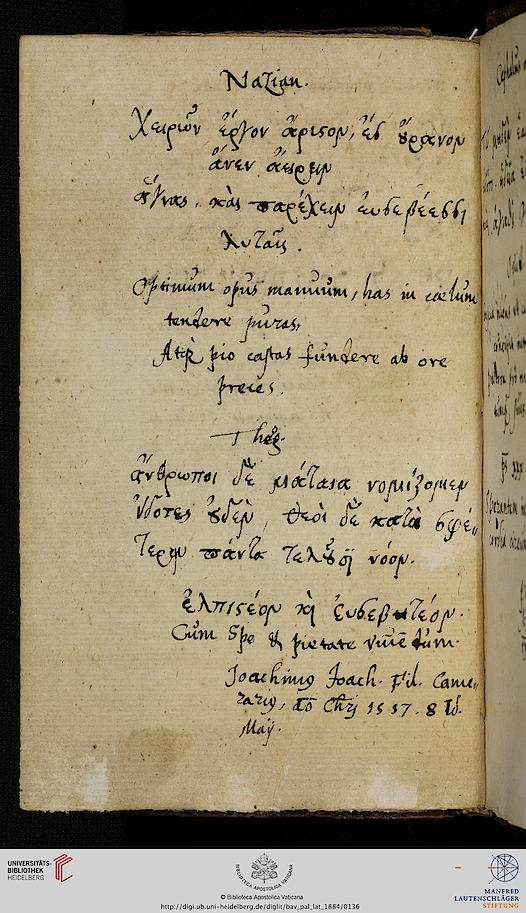 Nazian.
Χειρῶν ἔργον ἄριστον, ἐς ȣ̓ρανον
ἄνεν ἀείρειν
ἁγνας, κὰς παρέχειν ἐυσεβέεσσι
λιταῖς.
Optimum opus manuum, has in cœlum
tendere puras,
Atq́ꝫ pio castas fundere ab ore
preces.
Theog.
ἄνθρωποι δὲ μάταια νομίζομεν
ἰδοτες ȣ̓δὲν, θεὸι δὲ κατὰ σφέ⸗
τερον πάντα τελȣ͂σϊ νόον.
ἐλπιστέον κὴ ἐυσεβητέον.
Cum Spe & pietate viuēdum.
Joachimus Joach. Fil. Came⸗
rarius, ao Chrj 1557. 8 Id.
Maij.
UNIVERSITÄTS-
BIBLIOTHEK
HEIDELBERG
BIBLIOTECA APOSTOLICA VATICANA
© Biblioteca Apostolica Vaticana
http://digi.ub.uni-heidelberg.de/diglit/bav_pal_lat_1884/0136
MANFRED
LAUTENSCHLÄGER
STIFTUNG